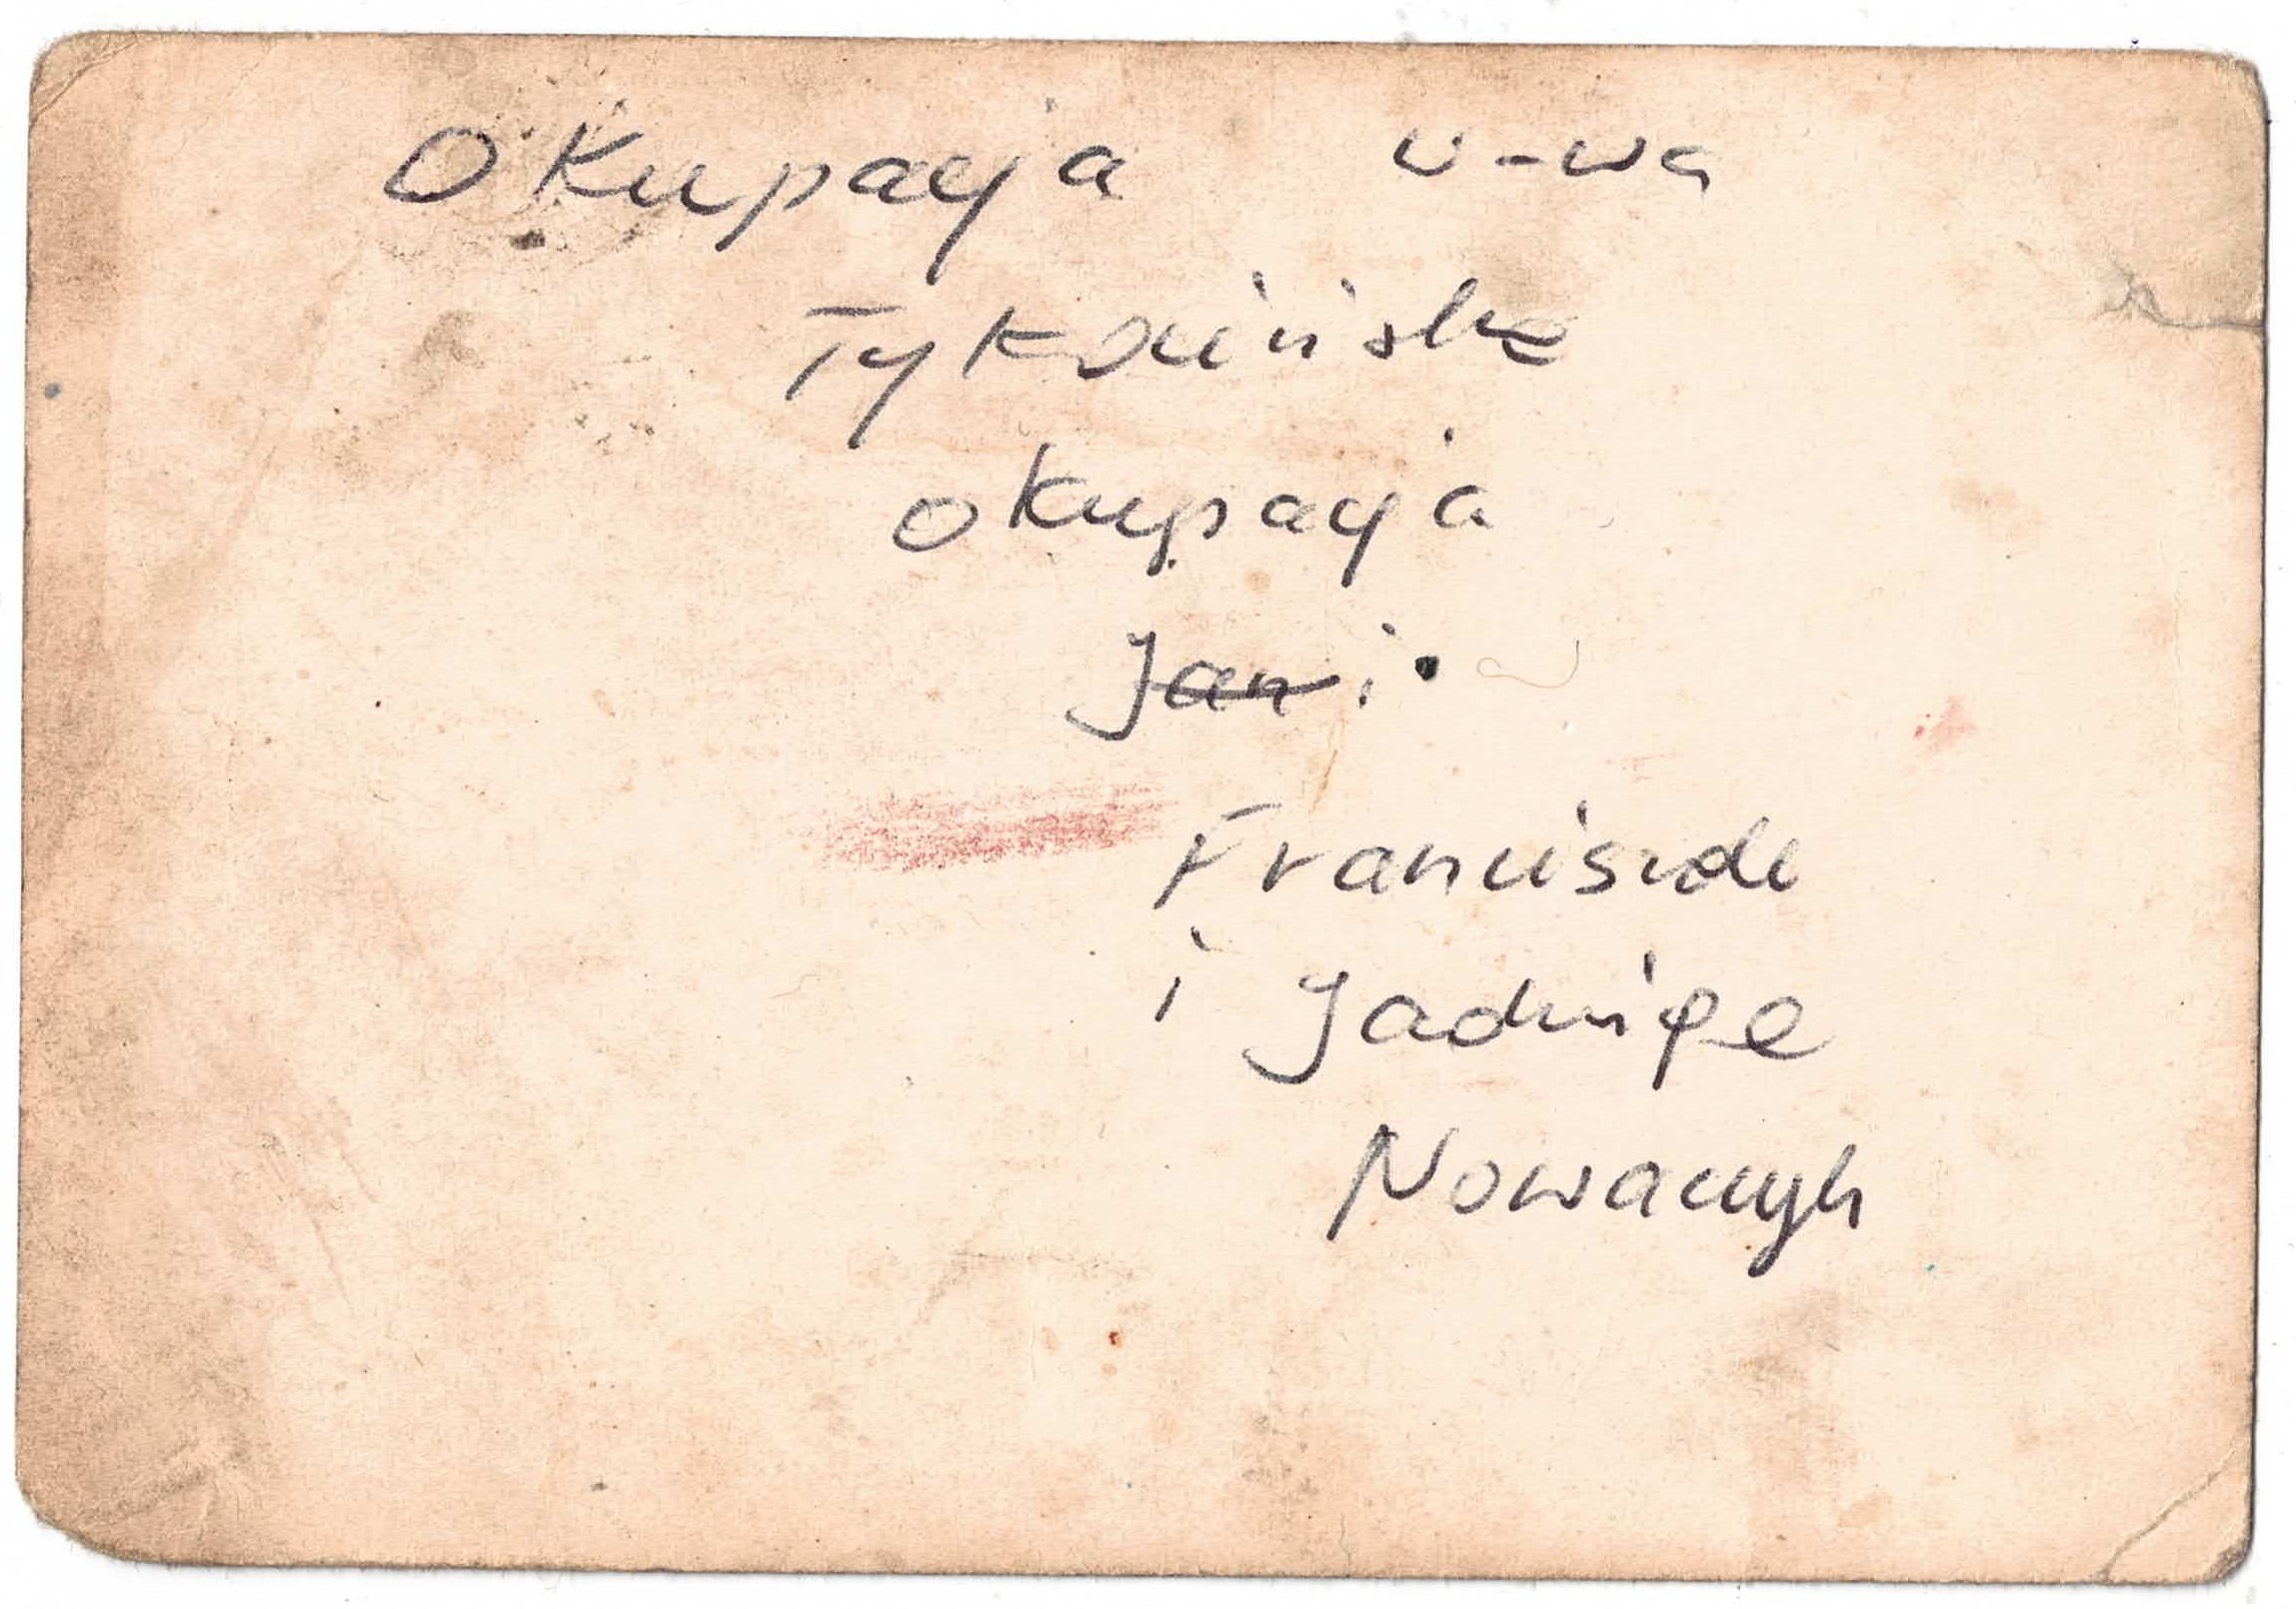 Okupacja W-wa
Tykocińska
okupacja
Jan i
Franciszek
i Jadwiga
Nowaccych